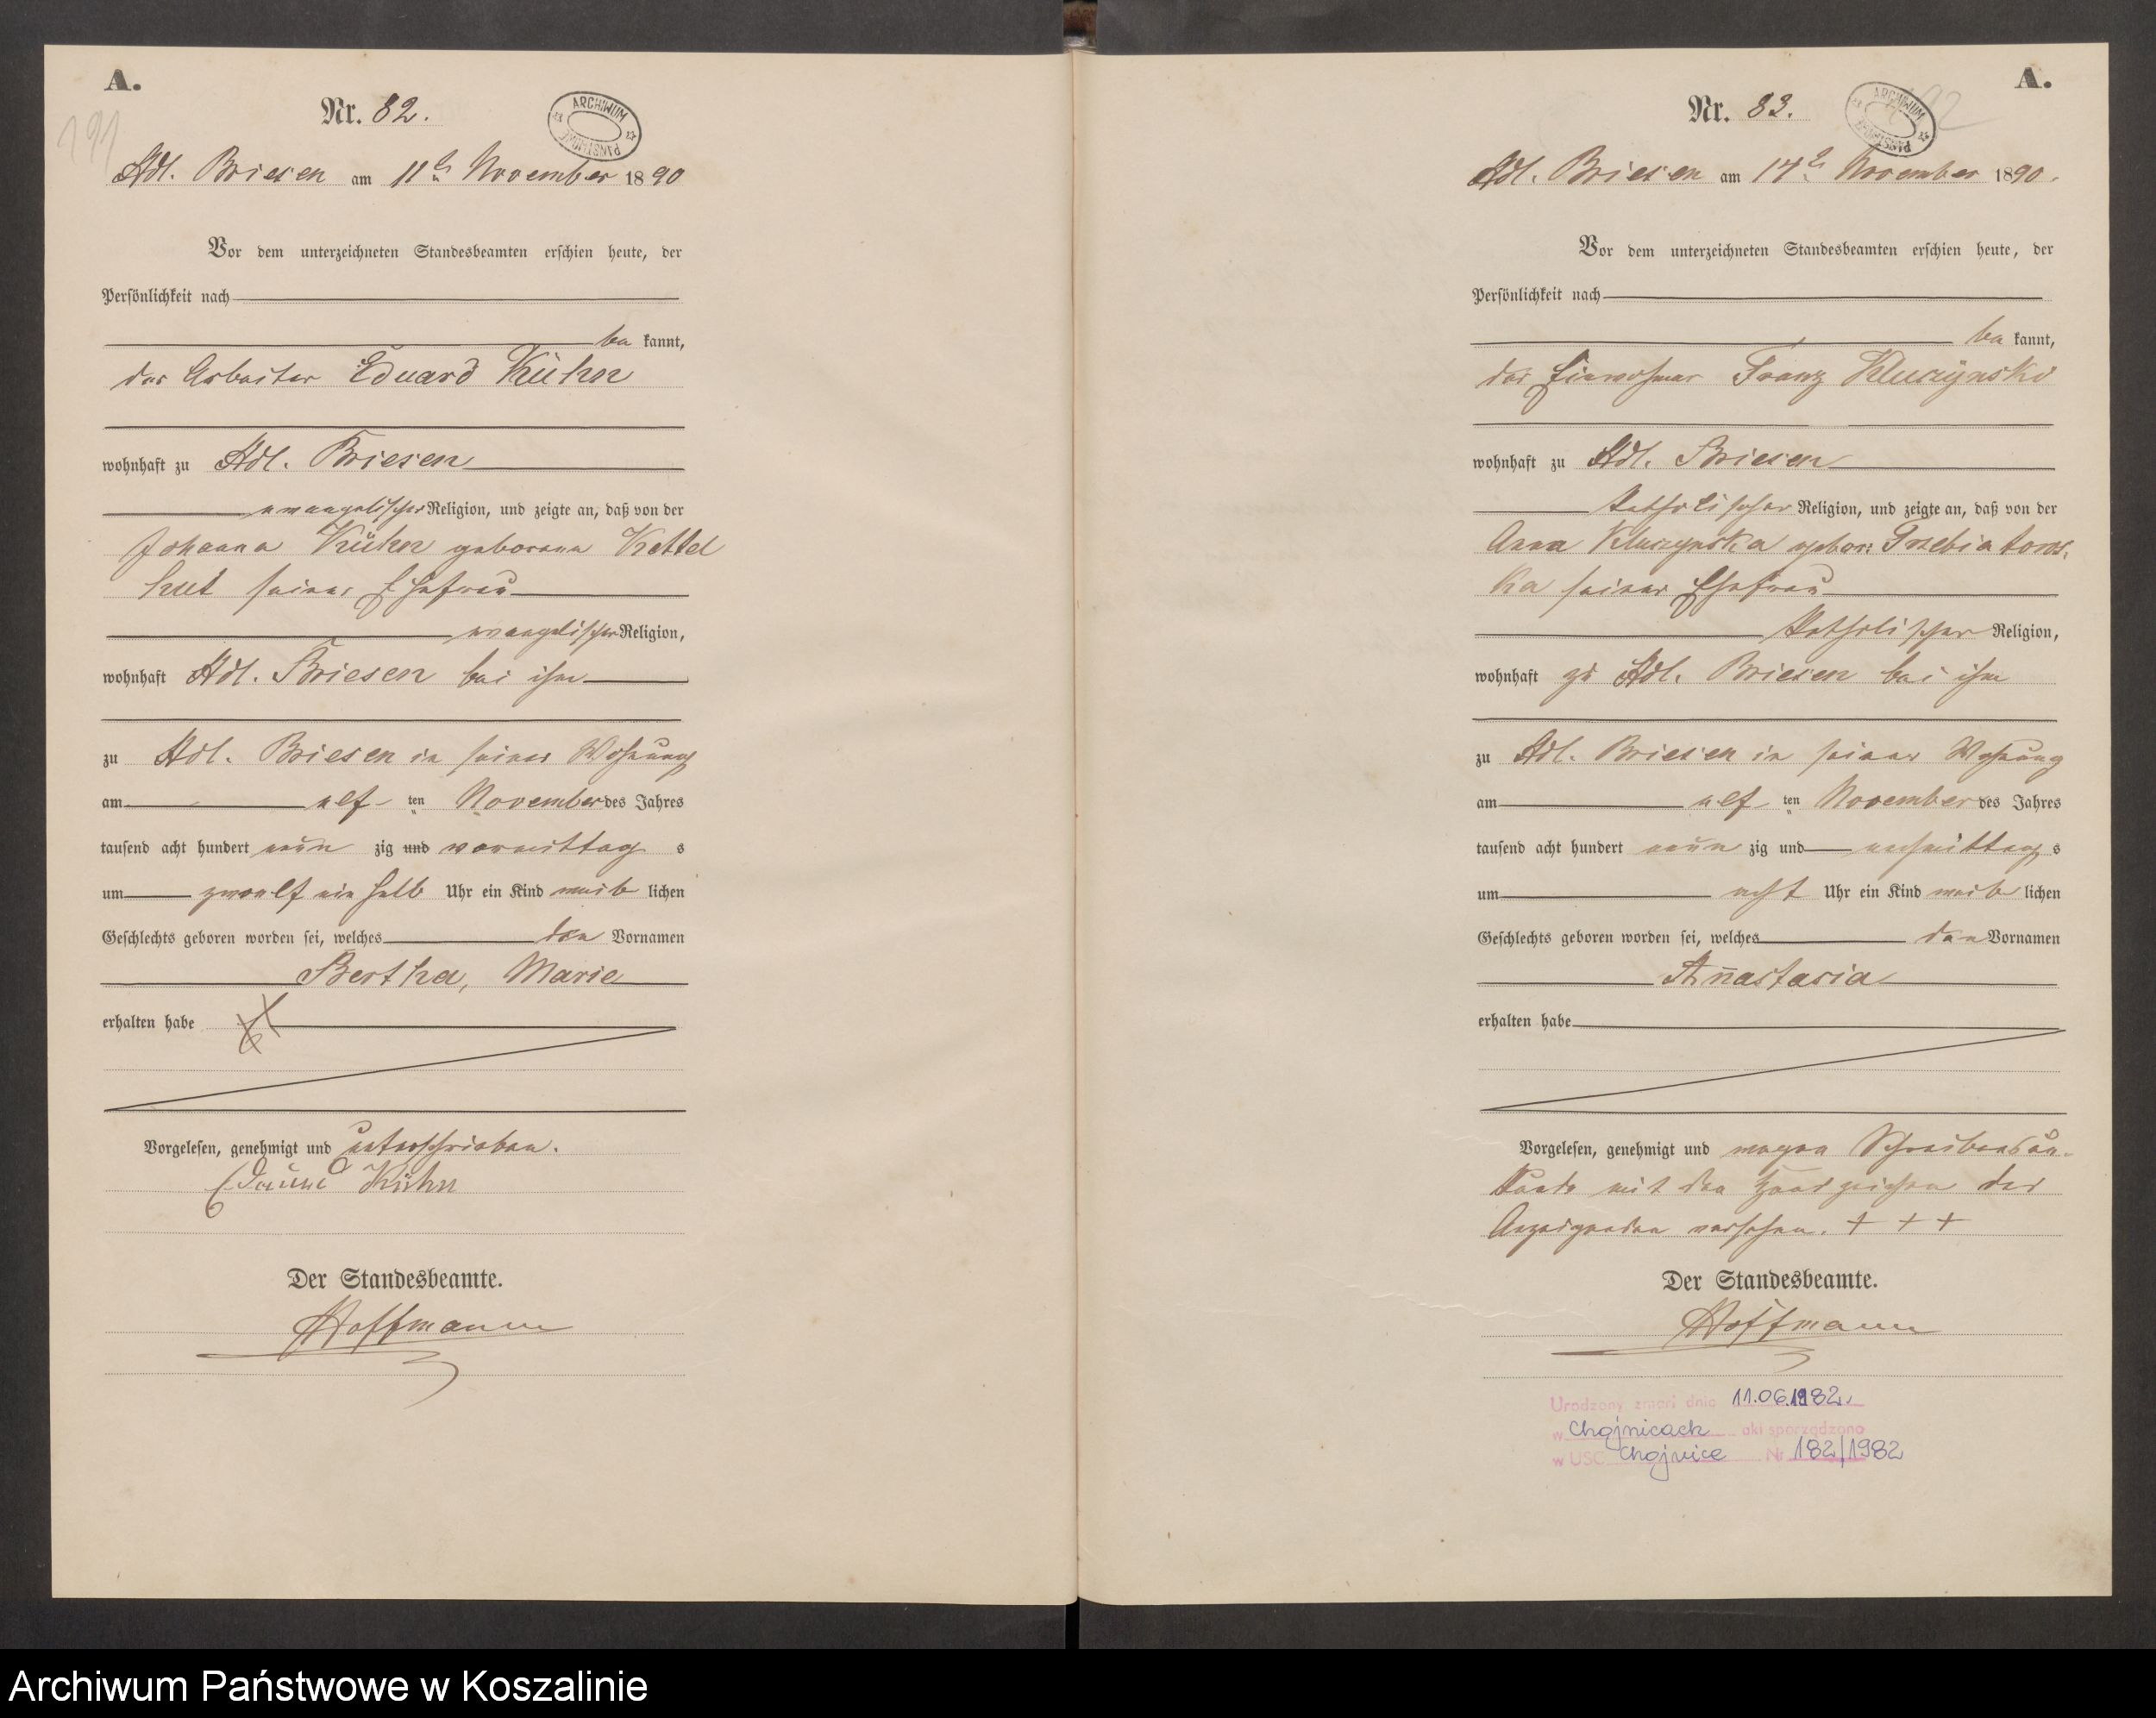 A.
191
Nr. 82.
ARCHIWUM PAŃSTWOWE
Adl. Briesen am 11ten November 1890
Vor dem unterzeichneten Standesbeamten erschien heute, der
Persönlichkeit nach
be kannt,
der Arbeiter Eduard Kühn
wohnhaft zu Adl. Briesen
evangelischer Religion, und zeigte an, daß von der
Johanna Kühn geborene Kettel
hut seiner Ehefrau
evangelischer Religion,
wohnhaft Adl. Briesen bei ihm
zu Adl. Briesen in seiner Wohnung
am elf ten November des Jahres
tausend acht hundert neun zig und vormittag s
um zwoelf ein halb Uhr ein Kind weib lichen
Geschlechts geboren worden sei, welches den Vornamen
Bertha, Marie
erhalten habe
Vorgelesen, genehmigt und unterschrieben.
Eduard Kühn
Der Standesbeamte.
Hoffmann
A.
Nr. 83.
ARCHIWUM PAŃSTWOWE
Adl. Briesen am 17ten November 1890.
Vor dem unterzeichneten Standesbeamten erschien heute, der
Persönlichkeit nach
be kannt,
der Einwohner Franz Kluczynski
wohnhaft zu Adl. Briesen
katholischer Religion, und zeigte an, daß von der
Anna Kluczynska gebor: Trzebiatows-
ka seiner Ehefrau
katholischer Religion,
wohnhaft zu Adl. Briesen bei ihm
zu Adl. Briesen in seiner Wohnung
am elf ten November des Jahres
tausend acht hundert neun zig und nachmittag s
um acht Uhr ein Kind weib lichen
Geschlechts geboren worden sei, welches den Vornamen
Anastasia
erhalten habe
Vorgelesen, genehmigt und wegen Schreibensun-
kunde mit den Handzeichen des
Anzeigenden versehen. + + +
Der Standesbeamte.
Hoffmann
Urodzony zmarł dnia 11.06.1982
w Chojnicach akt sporządzono
w USC Chojnice Nr 182/1982
Archiwum Państwowe w Koszalinie